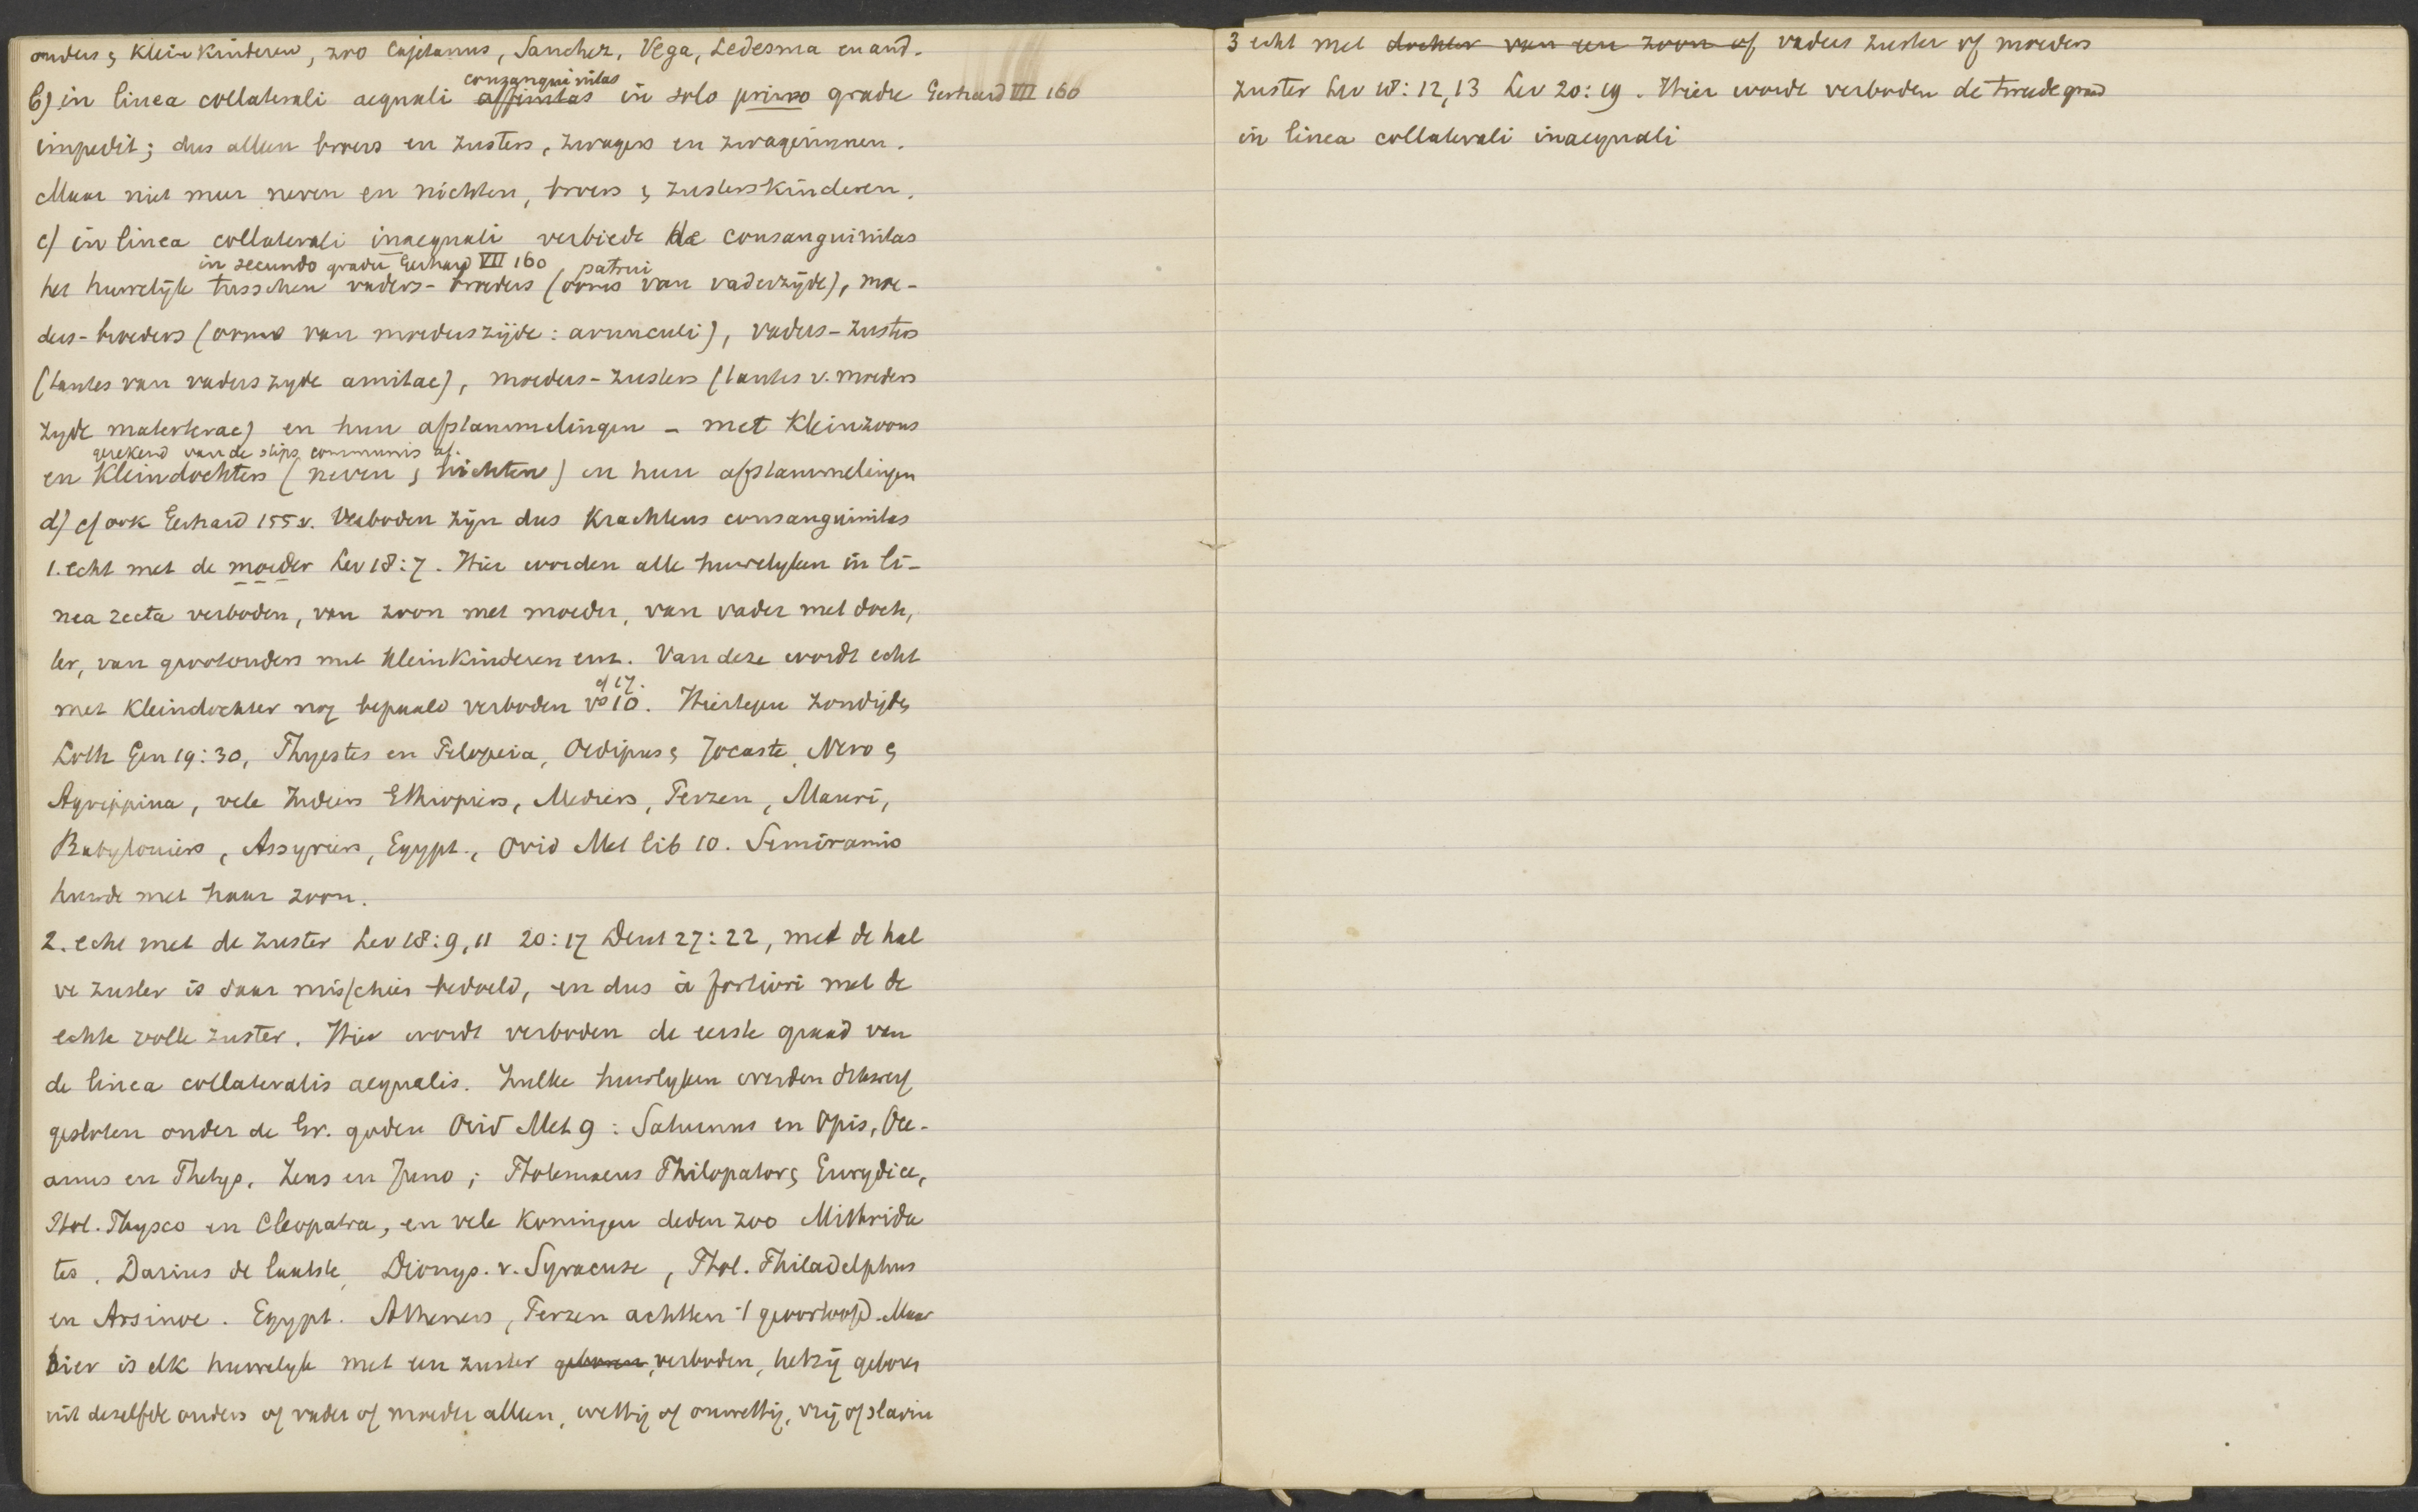 ouders & kleinkinderen, zoo Cajetanus, Sanchez, Vega, Ledesma en and.
consanguinitas
b) in linea collaterali aequali affinitas in solo primo gradu Gerhard VII 160
impedit; dus alleen broers en zusters, zwagers en zwagerinnen.
Maar niet meer neven en nichten, broers & zusterskinderen.
c) in linea collaterali inaequali verbiedt de consanguinitas
in secundo gradu Gerhard VII 160, patrui
het huwelijk tusschen vaders-broeders (ooms van vaderzijde), moe-
ders-broeders (ooms van moederszijde: avunculi), vaders-zusters
(tantes van vaders zyde amitae), moeders-zusters (tantes v. moeders
zyde materterae) en hun afstammelingen - met kleinzoons
gerekend van de stips communis af.
en kleindochters (neven & nichten) en hun afstammelingen
d) cf ook Gerhard 155 v. Verboden zijn dus krachtens consanguinitas
1. echt met de moeder Lev 18:7. Hier worden alle huwelyken in li-
nea recta verboden, van zoon met moeder, van vader met doch,
ter, van grootouders met kleinkinderen enz. Van deze wordt echt
cf 17.
met kleindochter nog bepaald verboden vs 10. Hiertegen zondigde
Loth Gen 19:30, Thyestes en Pelopeia, Oedipus & Jocaste, Nero &
Agrippina, vele Indiers Ethiopiers, Mediers, Perzen, Mauri,
Babyloniers, Assyriers, Egypt., Ovid Met lib 10. Semiramis
huwde met haar zoon.
2. echt met de zuster Lev 18:9, 11 20:17 Deut 27:22, met de hal
ve zuster is daar misschien bedoeld, en dus à fortiori met de
echte volle zuster. Hier wordt verboden de eerste graad van
de linea collateralis aequalis. Zulke huwlyken werden dikwerf
gesloten onder de Gr. goden Ovid Met 9: Saturnus en Opis, Oce-
anus en Thetys, Zeus en Juno; Ptolemaeus Philopator & Eurydice,
Ptol. Physco en Cleopatra, en vele Koningen deden zoo Mithrida
tes, Darius de laatste, Dionys. v. Syracuse, Ptol. Philadelphus
en Arsinoe. Egypt. Atheners, Perzen achtten 't geoorloofd. Maar
hier is elk huwelyk met een zuster geboren, verboden, hetzij geboren
uit dezelfde ouders of vader of moeder alleen, wettig of onwettig, vrij of slavin
3 echt met dochter van een zoon of vaders zuster of moeders
zuster Lev 18:12,13 Lev 20:19. Hier wordt verboden de tweede graad
in linea collaterali inaequali